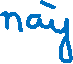 này